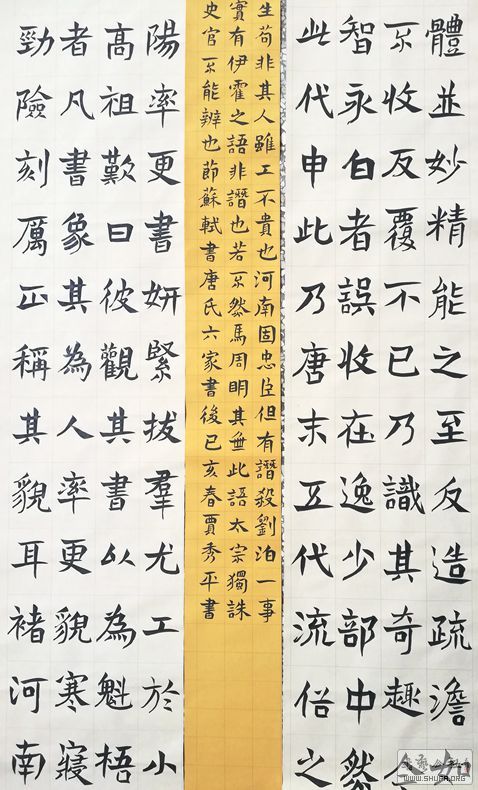 體並妙精能之至反造疏澹如
不收反覆不已乃識其奇趣今
智永白者誤收在逸少部中然
此代申此乃唐末五代流俗之
生苟非其人雖工不貴也河南固忠臣但有譖殺劉泊一事
實有伊霍之語非譖也若不然馬周明其無此語太宗獨誅
史官不能辨也節蘇軾書唐氏六家書後己亥春賈秀平書
陽率更書妍緊拔羣尤工於小
高祖歎曰彼觀其書以為魁梧
者凡書象其為人率更貌寒寢
勁險刻厲正稱其貌耳褚河南
WWW.SHUFA.ORG